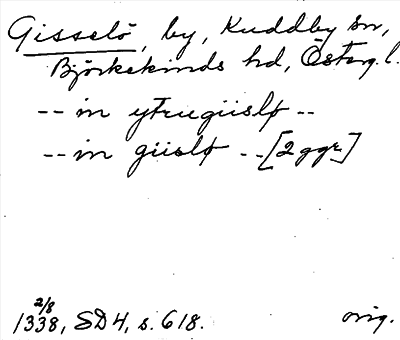 Gisselö, by, Kuddby sn,
Björkekinds hd, Österg. l.
-- in ytrugiislø --
-- in giislø -- [2 ggr]
2/8
1338, SD 4, s. 618. orig.